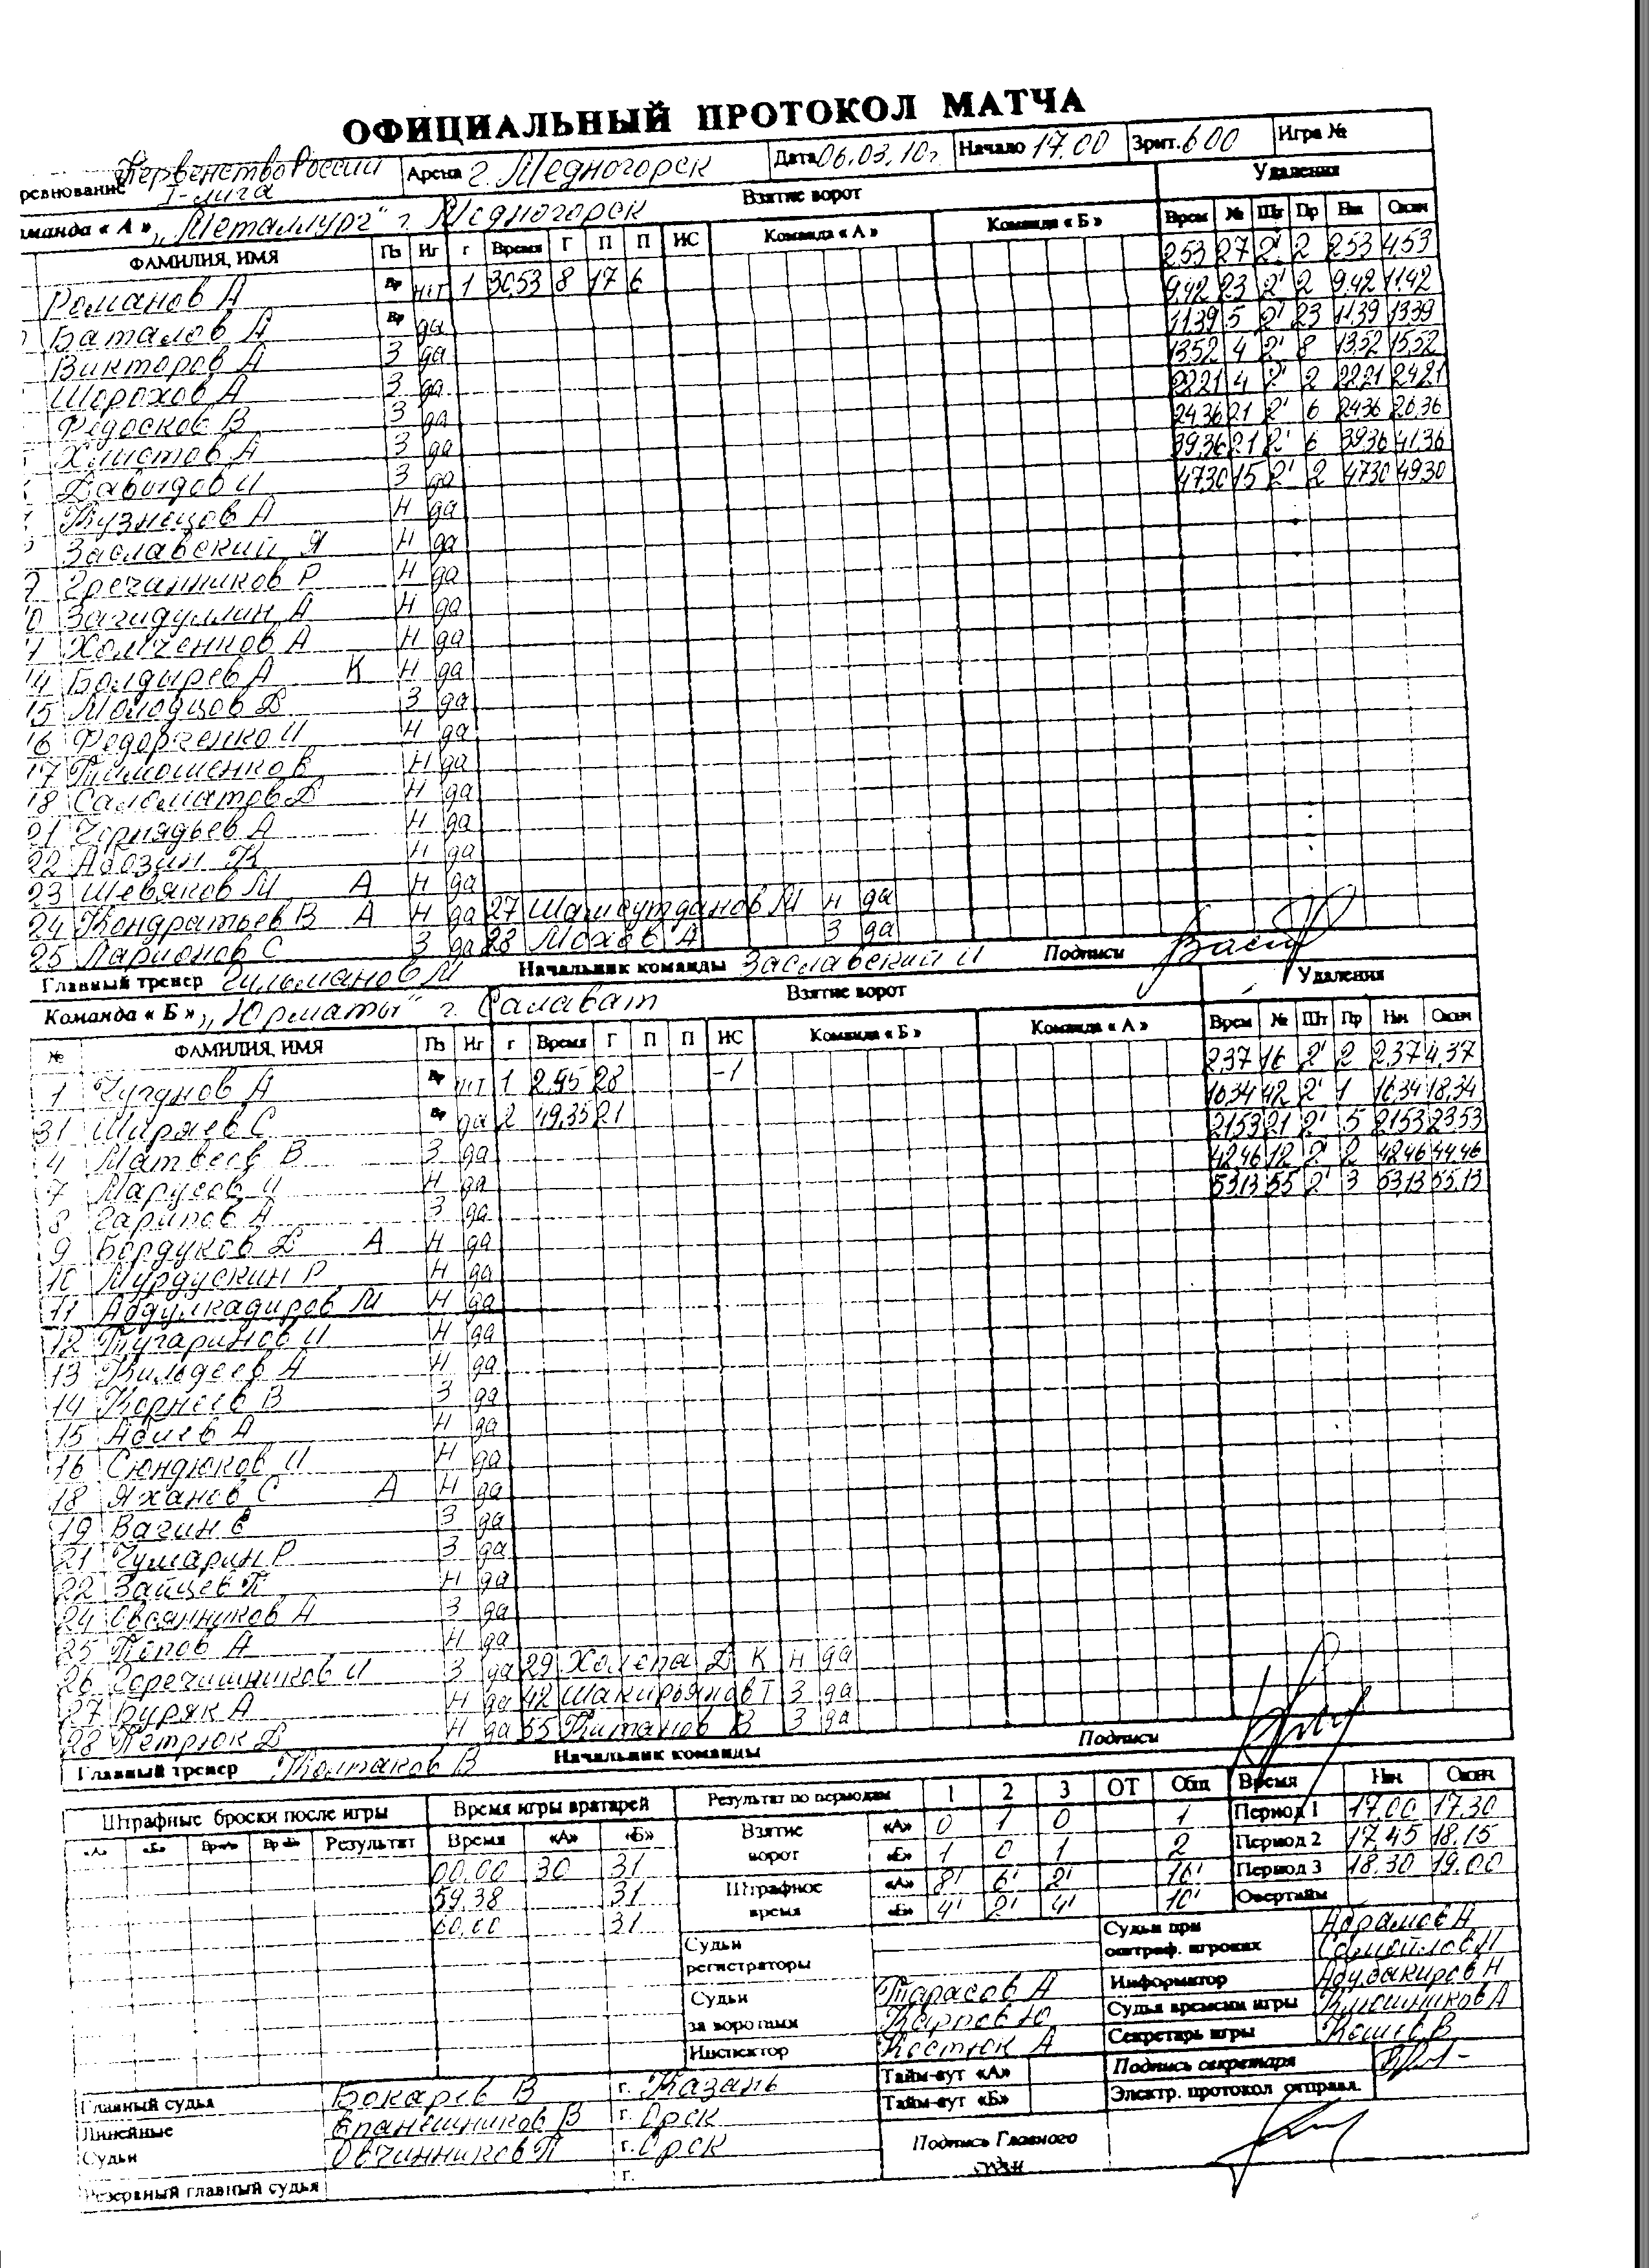 ОФИЦИАЛЬНЫЙ ПРОТОКОЛ МАТЧА
ревнование Первенство России I-лига Арена г. Медногорск Дата 06.03.10г. Начало 17.00 Зрит. 600 Игра №
манда « А » „Металлург" г. Медногорск Взятие ворот Удаления
ФАМИЛИЯ, ИМЯ Пз Иг г Время Г П П ИС Команда « А » Команда « Б » Время № Шт Пр Нач Оконч
Романов А Вр нет 1 30,53 8 17 6 2,53 27 2' 2 2,53 4,53
Баталов А Вр да 9,42 23 2' 2 9,42 11,42
Викторов А З да 11,39 5 2' 23 11,39 13,39
Шорохов А З да 13,52 4 2' 8 13,52 15,52
Федосков В З да 22,21 4 2' 2 22,21 24,21
Хлистов А З да 24,36 21 2' 6 24,36 26,36
Давыдов И З да 39,36 21 2' 6 39,36 41,36
Кузнецов А Н да 47,30 15 2' 2 47,30 49,30
Заславский Я Н да
Гречанников Р Н да
Загидуллин А Н да
Холиченков А Н да
14 Болдырев А К Н да
15 Молодцов Д З да
16 Федорченко И Н да
17 Тимошенков Н да
18 Саломатов Д Н да
21 Чернядьев А Н да
22 Абозин К Н да
23 Шевяков М А Н да
24 Кондратьев В А Н да 27 Шамсутданов М Н да
25 Ларионов С З да 28 Мохов А З да
Главный тренер Гильманов М Начальник команды Заславский И Подписи
Команда « Б » „Юрматы" г. Салават Взятие ворот Удаления
№ ФАМИЛИЯ, ИМЯ Пз Иг г Время Г П П ИС Команда « Б » Команда « А » Время № Шт Пр Нач Оконч
1 Чугунов А Вр нет 1 2,45 28 -1 2,37 16 2' 2 2,37 4,37
31 Ширяев С Вр да 2 49,35 21 16,34 42 2' 1 16,34 18,34
4 Матвеев В З да 21,53 21 2' 5 21,53 23,53
7 Марусов И Н да 42,46 12 2' 2 42,46 44,46
8 Гарипов А З да 53,13 55 2' 3 53,13 55,13
9 Бордуков Д А Н да
10 Мурдускин Р Н да
11 Абдулкадиров М Н да
12 Тугаринов И Н да
13 Кильдеев А Н да
14 Корнеев В З да
15 Абиев А Н да
16 Сюндюков И Н да
18 Яханов С А Н да
19 Вагин Е З да
21 Чумарин Р З да
22 Зайцев П Н да
24 Овсянников А З да
25 Попов А Н да
26 Горечишников И З да 29 Холепа Д К Н да
27 Буряк А Н да 42 Шакирьянов Т З да
28 Петрюк Д Н да 55 Китанов В З да
Главный тренер Колпаков В Начальник команды Подписи
Штрафные броски после игры Время игры вратарей Результат по периодам 1 2 3 ОТ Общ Время Нач Оконч
«А» «Б» Вр «А» Вр «Б» Результат Время «А» «Б» Взятие ворот «А» 0 1 0 1 Период 1 17.00 17.30
00.00 30 31 «Б» 1 0 1 2 Период 2 17.45 18.15
59.38 31 Штрафное время «А» 8' 6' 2' 16' Период 3 18.30 19.00
60.00 31 «Б» 4' 2' 4' 10' Овертайм
Судьи регистраторы Судьи при оштраф. игроках Абрамов А
Самойлов Н
Судьи за воротами Тарасов А Информатор Абубакиров Н
Карпов Ю Судья времени игры Ключников А
Инспектор Костюк А Секретарь игры Кошев В
Тайм-аут «А» Подпись секретаря
Тайм-аут «Б» Электр. протокол отправл.
Главный судья Бокарев В г. Казань
Линейные Епанешников В г. Орск
Судьи Овчинников П г. Орск
Подпись Главного судьи
Резервный главный судья г.